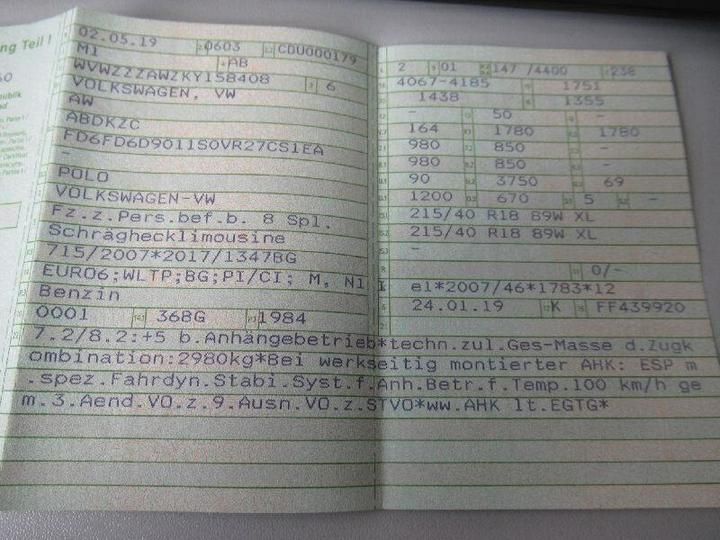 ng Teil I
02.05.19 0603 CDU000179
M1 AB
WVWZZZAWZKY158408 6
VOLKSWAGEN, VW
AW
ABDKZC
FD6FD6D9011S0VR27CS1EA
-
POLO
VOLKSWAGEN-VW
Fz.z.Pers.bef.b. 8 Spl.
Schräghecklimousine
715/2007*2017/1347BG
EURO6;WLTP;BG;PI/CI; M, N1 I
Benzin
0001 36BG 1984
2 01 147 /4400 238
4067-4185 1751
1438 1355
- 50 -
164 1780 1780
980 850 -
980 850 -
90 3750 69
1200 670 5 -
215/40 R18 89W XL
215/40 R18 89W XL
-
0/-
e1*2007/46*1783*12
24.01.19 K FF439920
7.2/8.2:+5 b.Anhängebetrieb*techn.zul.Ges-Masse d.Zugk
ombination:2980kg*Bei werkseitig montierter AHK: ESP m
.spez.Fahrdyn.Stabi.Syst.f.Anh.Betr.f.Temp.100 km/h ge
m.3.Aend.VO.z.9.Ausn.VO.z.STVO*ww.AHK lt.EGTG*